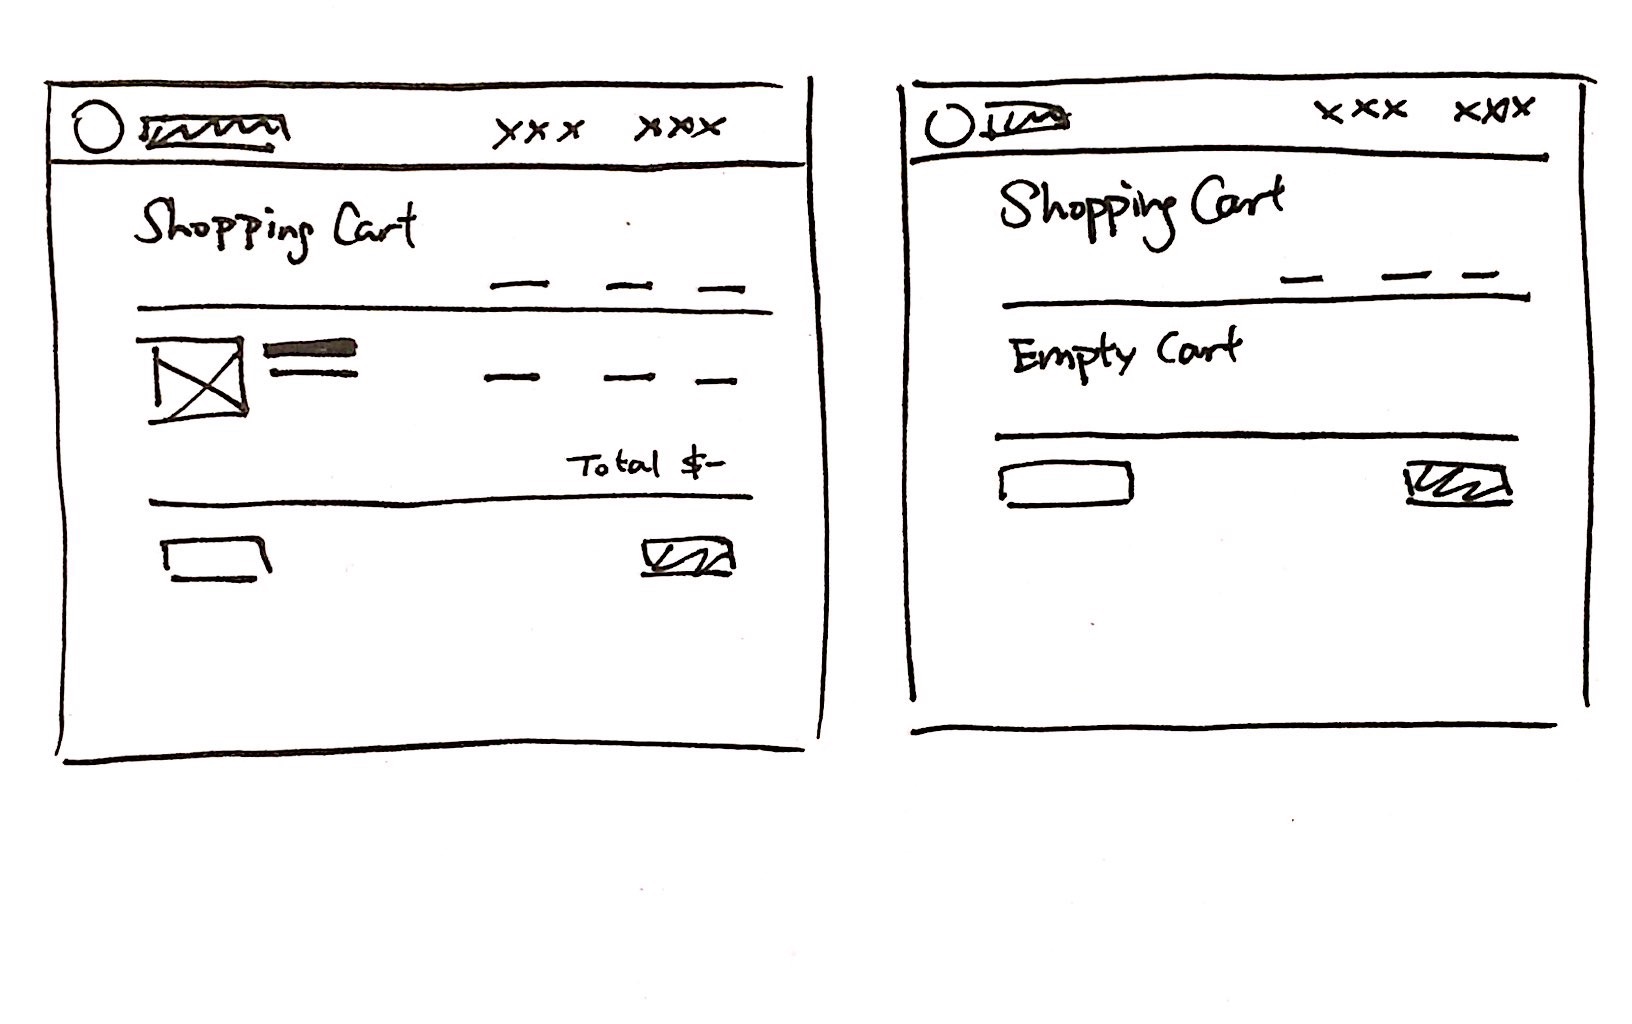 xxx xxx
Shopping Cart
Total $-
xxx xxx
Shopping Cart
Empty Cart